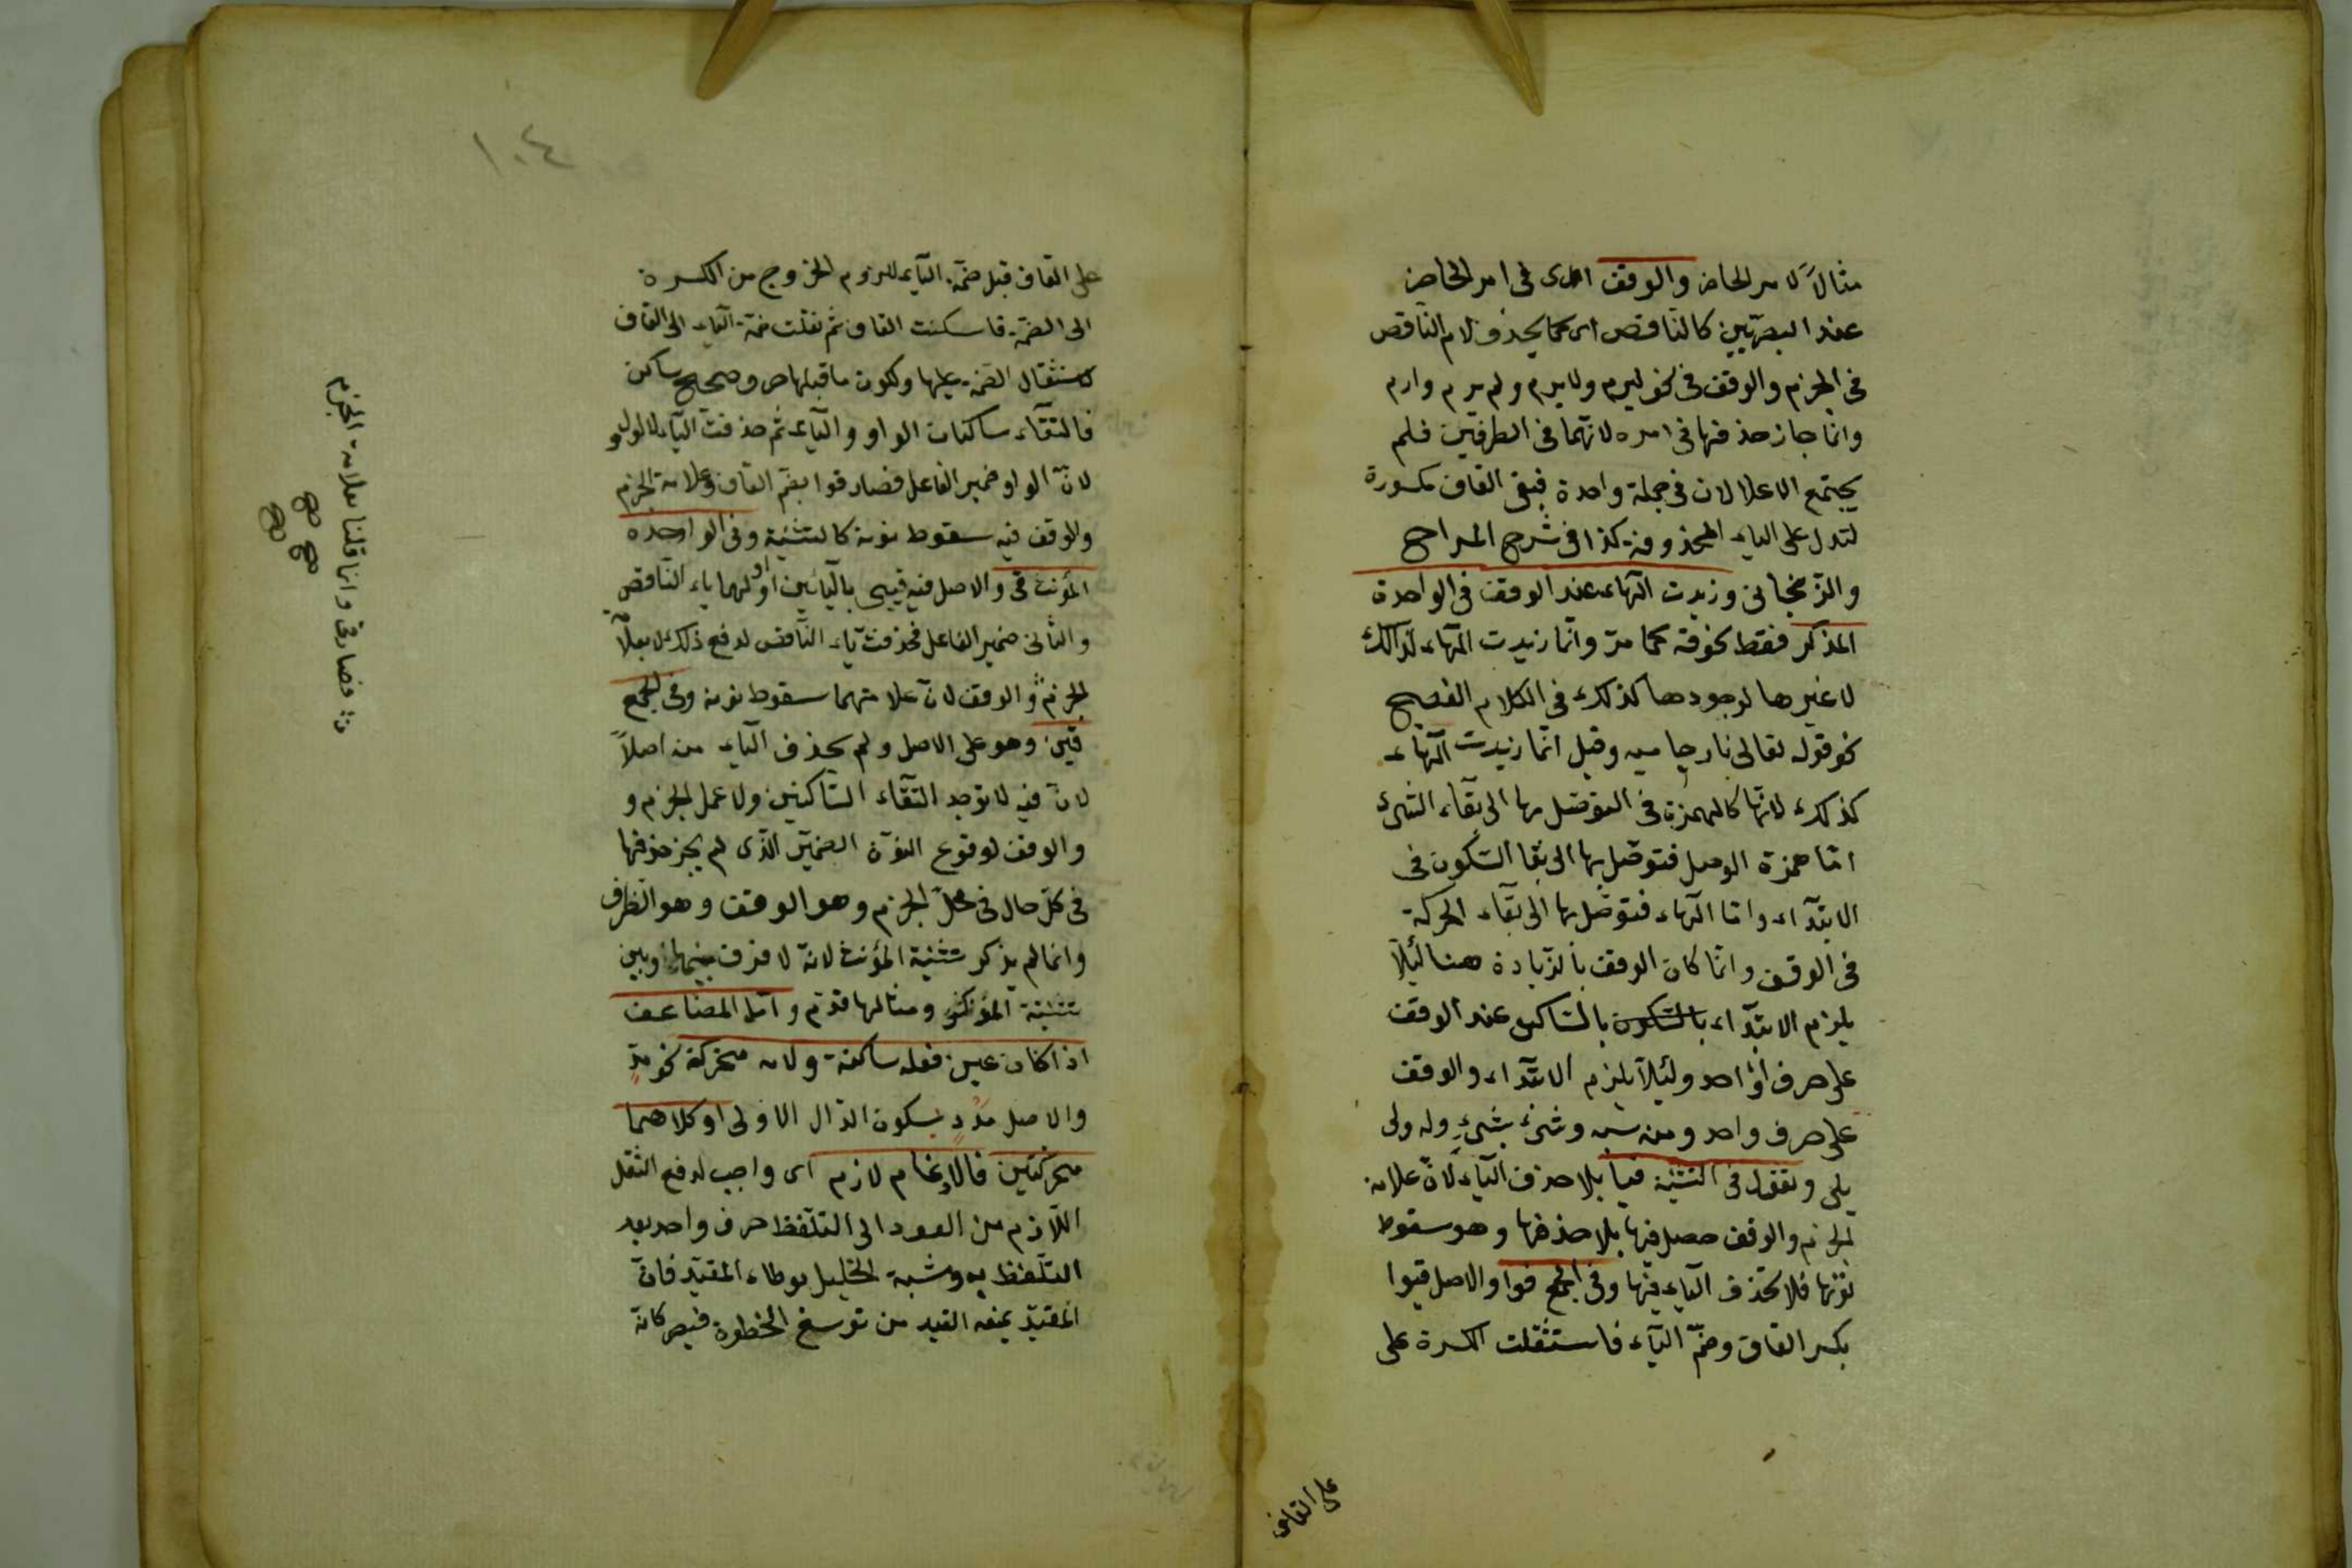 مثالاً لامر الحاضر والوقف اى فى امر الحاضر
عند البصريين كالناقص اى كما يحذف لام الناقص
فى الجزم والوقف فى نحو ليرم ولا يرم ولم يرم وارم
وانما جاز حذفها فى امره لانهما فى الطرفين فلم
يجتمع الاعلالان فى جملة واحدة فبقى القاف مكسورة
لتدل على الياء المحذوفة كذا فى شرح المراح
والزنجانى وزيدت الهاء عند الوقف فى الواحدة
المذكر فقط نحو قه كما مر وانما زيدت الهاء لذلك
لا غيرها لوجودها كذلك فى الكلام الفصيح
نحو قوله تعالى نار حاميه وقيل انما زيدت الهاء
كذلك لانها كالهمزة فى التوصل بها الى بقاء الشئ
اما همزة الوصل فتوصل بها الى بقا السكون فى
الابتداء واما الهاء فتوصل بها الى بقاء الحركة
فى الوقف وانما كان الوقف بالزيادة هنا ليلا
يلزم الابتداء بالسكون بالساكن عند الوقف
على حرف واحد وليلا يلزم الابتداء والوقف
على حرف واحد ومنه شه وشئ بشئ وله ولى
يلى وتقول فى التثنية قيا بلا حذف الياء لان علامة
الجزم والوقف حصل فيها بلا حذفها وهو سقوط
نونها فلا تحذف الياء فيها وفى الجمع قوا والاصل قيوا
بكسر القاف وضم الياء فاستثقلت الكسرة على
على القاف
١٠٤
على القاف قبل ضمة الياء للزوم الخروج من الكسرة
الى الضمة فاسكنت القاف ثم نقلت ضمة الياء الى القاف
لاستثقال الضمة عليها ولكون ما قبلها حرف صحيح ساكن
فالتقاء ساكنان الواو والياء ثم حذفت الياء لا الواو
لان الواو ضمير الفاعل فصار قوا بضم القاف وعلامة الجزم
والوقف فيه سقوط نونه كالتثنية وفى الواحدة
المؤنث قى والاصل فيه قيى باليائين اولهما ياء الناقص
والثانى ضمير الفاعل فحذفت ياء الناقص لدفع ذلك لا بعلا
الجزم والوقف لان علامتهما سقوط نونه وفى الجمع
قين وهو على الاصل ولم يحذف الياء منه اصلاً
لان فيه لا توجد التقاء الساكنين ولا عمل الجزم و
والوقف لوقوع النون الضمير الذى لم يجز حذفها
فى كل حال فى محل الجزم وهو الوقف وهو الظرف
وانما لم يذكر تثنية المؤنث لانه لا فرق بينها وبين
تثنية المذكر ومثالها قدم واما المضاعف
اذا كان عين فعله ساكنة ولامه متحركة نحو مد
والاصل مدد بسكون الدال الاولى او كلاهما
متحركتين فالادغام لازم اى واجب لدفع الثقل
اللازم من العود الى التلفظ حرف واحد بعد
التلفظ به وشبه الخليل بوطاء المقيد فان
المقيد يمنعه القيد من توسيع الخطوة فيصر كانه
فصار قى وانما قلنا بعلامة الجزم
صح صح
صح